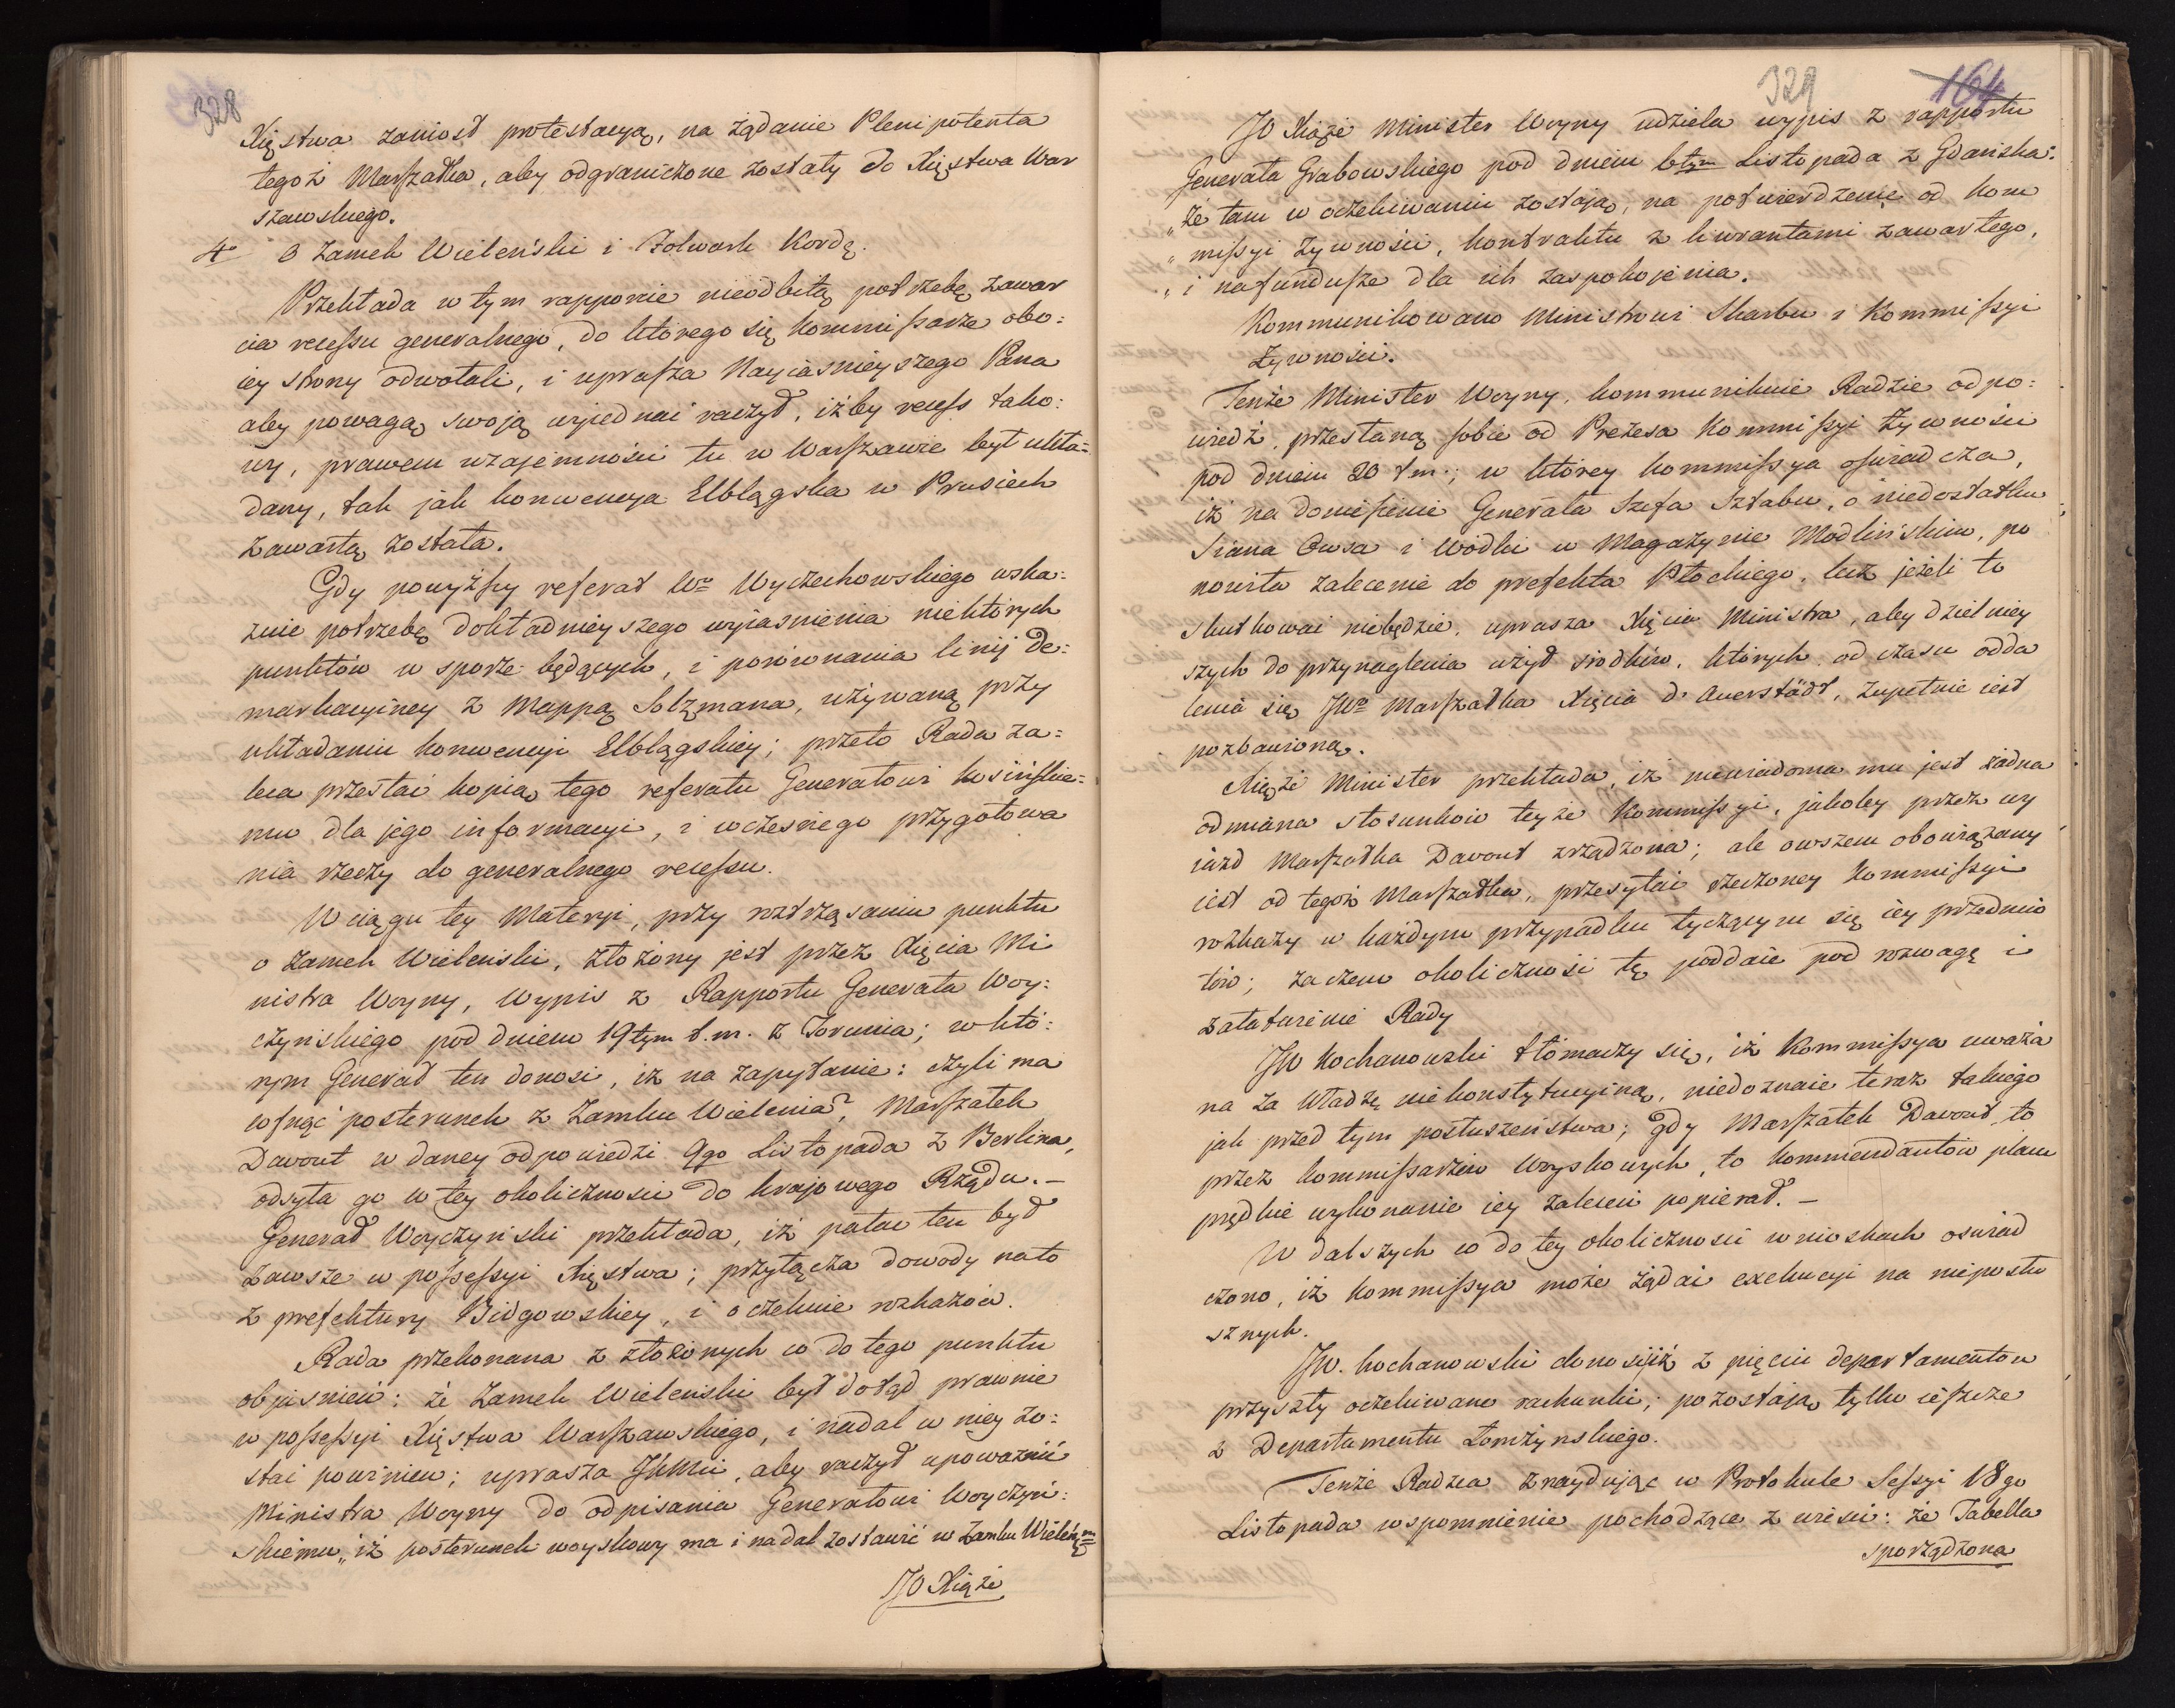 328
Xięstwa zaniosł protestacyą, na żądanie Plenipotenta
tegoż Marszałka, aby odgraniczone zostały do Xięstwa War
szawskiego.
4o O Zamek Wieleński i Folwark Kordę.
Przekłada w tym rapporcie nieodbitą potrzebę zawar
cia recessu generalnego, do którego się kommissarze obo:
iey strony odwołali, i uprasza Nayiasnieyszego Pana
aby powagą swoją wyjednać raczył, iżby recess tako:
wy, prawem wzajemności tu w Warszawie był ukła=
dany, tak jak konwencya Elblągska w Prusiech
zawartą została.
Gdy powyższy referat Wo Wyczechowskiego wska:
zuie potrzebę dokładnieyszego wyiasnienia niektórych
punktów w sporze będących, i porównania linij De:
markacyiney z Mappą Solzmana, używaną przy
układaniu konwencyi Elblągskiey; przeto Rada za=
leca przesłać kopią tego referatu Generałowi Kosińskie=
mu dla jego informacyi, i wczesnego przygotowa
nia rzeczy do generalnego recessu.
W ciągu tey Materyi, przy roztrząsaniu punktu
o zamek Wieleński, złożony jest przez Xięcia Mi
nistra Woyny, Wypis z Rapportu Generała Woy:
czynskiego pod dniem 19tym t.m. z Torunia; w któ:
rym Generał ten donosi, iż na zapytanie: czyli ma
cofnąć posterunek z Zamku Wielenia? Marszałek
Davout w daney odpowiedzi 9go Listopada z Berlina,
odsyła go w tey okoliczności do krajowego Rządu. –
Generał Woyczyński przekłada, iż pałac ten był
zawsze w possessyi Xięstwa; przyłącza dowody nato
z prefektury Bidgowskiey, i oczekuie rozkazów.
Rada przekonana z złożonych co do tego punktu
objaśnień: że zamek Wieleński był dotąd prawnie
w possessyi Xięstwa Warszawskiego, i nadal w niey zo:
stać powinien; uprasza JKMci, aby raczył upoważnić
Ministra Woyny do odpisania Generałowi Woyczyń:
skiemu, „iż posterunek woyskowy ma i nadal zostawić w Zamku Wieleńm
JO Xiąże
329
164
JO Xiąże Minister Woyny udziela wypis z rapportu
Generała Grabowskiego pod dniem 6tym Listopada z Gdańska:
„że tam w oczekiwaniu zostają, na potwierdzenie od kom
„missyi Żywności, kontraktu z liwrantami zawartego,
„i na fundusze dla ich zaspokojenia.
Kommunikowano Ministrowi Skarbu i Kommissyi
Żywności.
Tenże Minister Woyny, kommunikuie Radzie odpo:
wiedź, przesłaną sobie od Prezesa Kommissyi Żywności
pod dniem 20 t.m.; w którey kommissya oświadcza,
iż na doniesienie Generała Szefa Sztabu, o niedostatku
Siana Owsa i Wódki w Magazynie Modlińskim, po
nowiła zalecenie do prefekta Płockiego, lecz jeżeli to
skutkować niebędzie, uprasza Xięcia Ministra, aby dzielniey
szych do przynaglenia użył srodków, których od czasu odda
lenia się JWo Marszałka Xięcia d'Auerstädt, zupełnie iest
pozbawioną.
Xiąże Minister przekłada, iż niewiadoma mu jest żadna
odmiana stosunków teyże Kommissyi, jakoby przez wy
iazd Marszałka Davout zrządzona; ale owszem obowiązany
iest od tegoż Marszałka, przesyłać rzeczoney Kommissyi
rozkazy w każdym przypadku tyczącym się iey przedmio
tów; zaczem okoliczności tę poddaie pod rozwagę i
załatwienie Rady
JW Kochanowski tłómaczy się, iż Kommissya uważa
na za Władzę niekonstytucyiną, niedoznaie teraz takiego
jak przed tym posłuszeństwa; gdy Marszałek Davout, to
przez kommissarzów Woyskowych, to kommendantów placu
prędkie wykonanie iey zaleceń popierał. –
W dalszych co do tey okoliczności wnioskach oświad
czono, iż Kommissya może żądać exekucyi na nieposłu
sznych.
JW. Kochanowski donosi, iż z pięciu departamentów
przyszły oczekiwane rachunki; pozostają tylko ieszcze
z Departamentu Łomżynskiego.
Tenże Radzca znayduiąc w Protokule Sessyi 18go
Listopada wspomnienie pochodzące z wieści: że Tabella
sporządzona